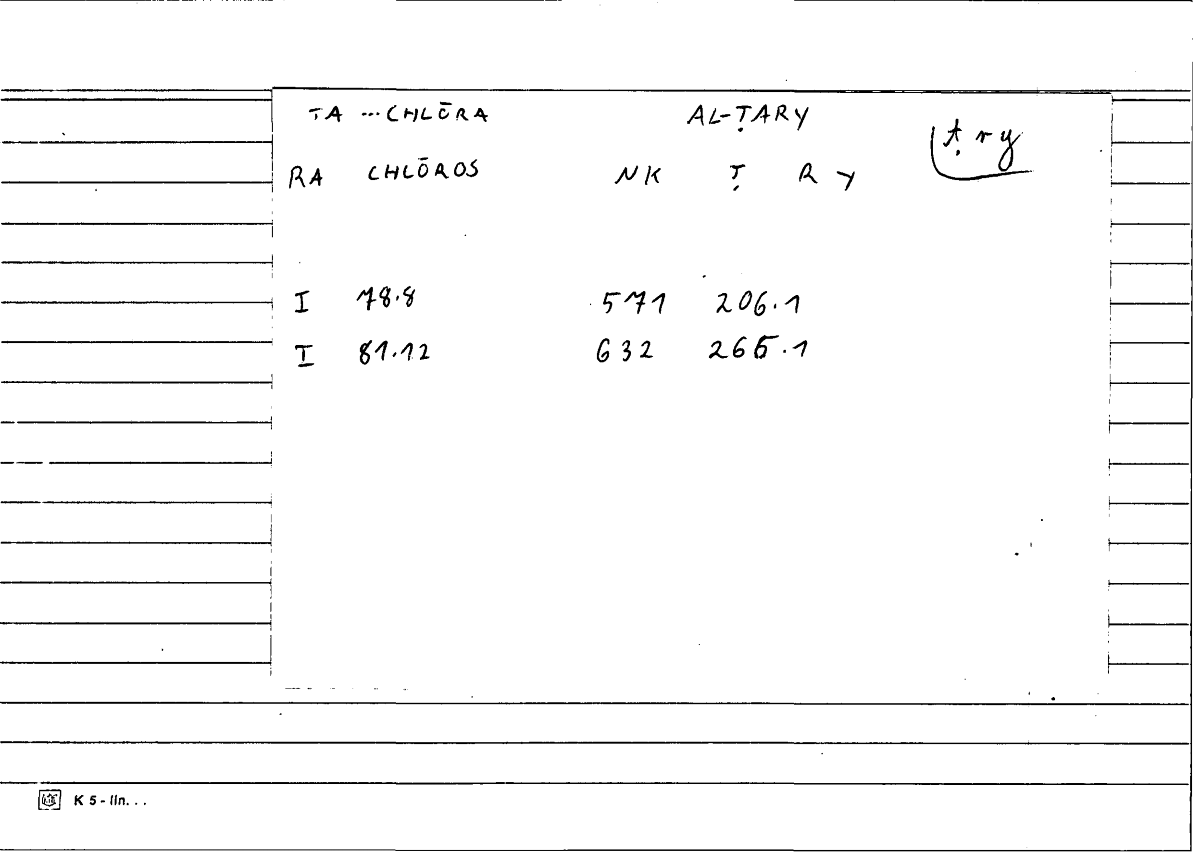 TA ... CHLŌRA AL-ṬARY
ṭry
RA CHLŌROS NK Ṭ R Y
I 78.8 571 206.1
I 81.12 632 265.1
K 5 - lln. . .